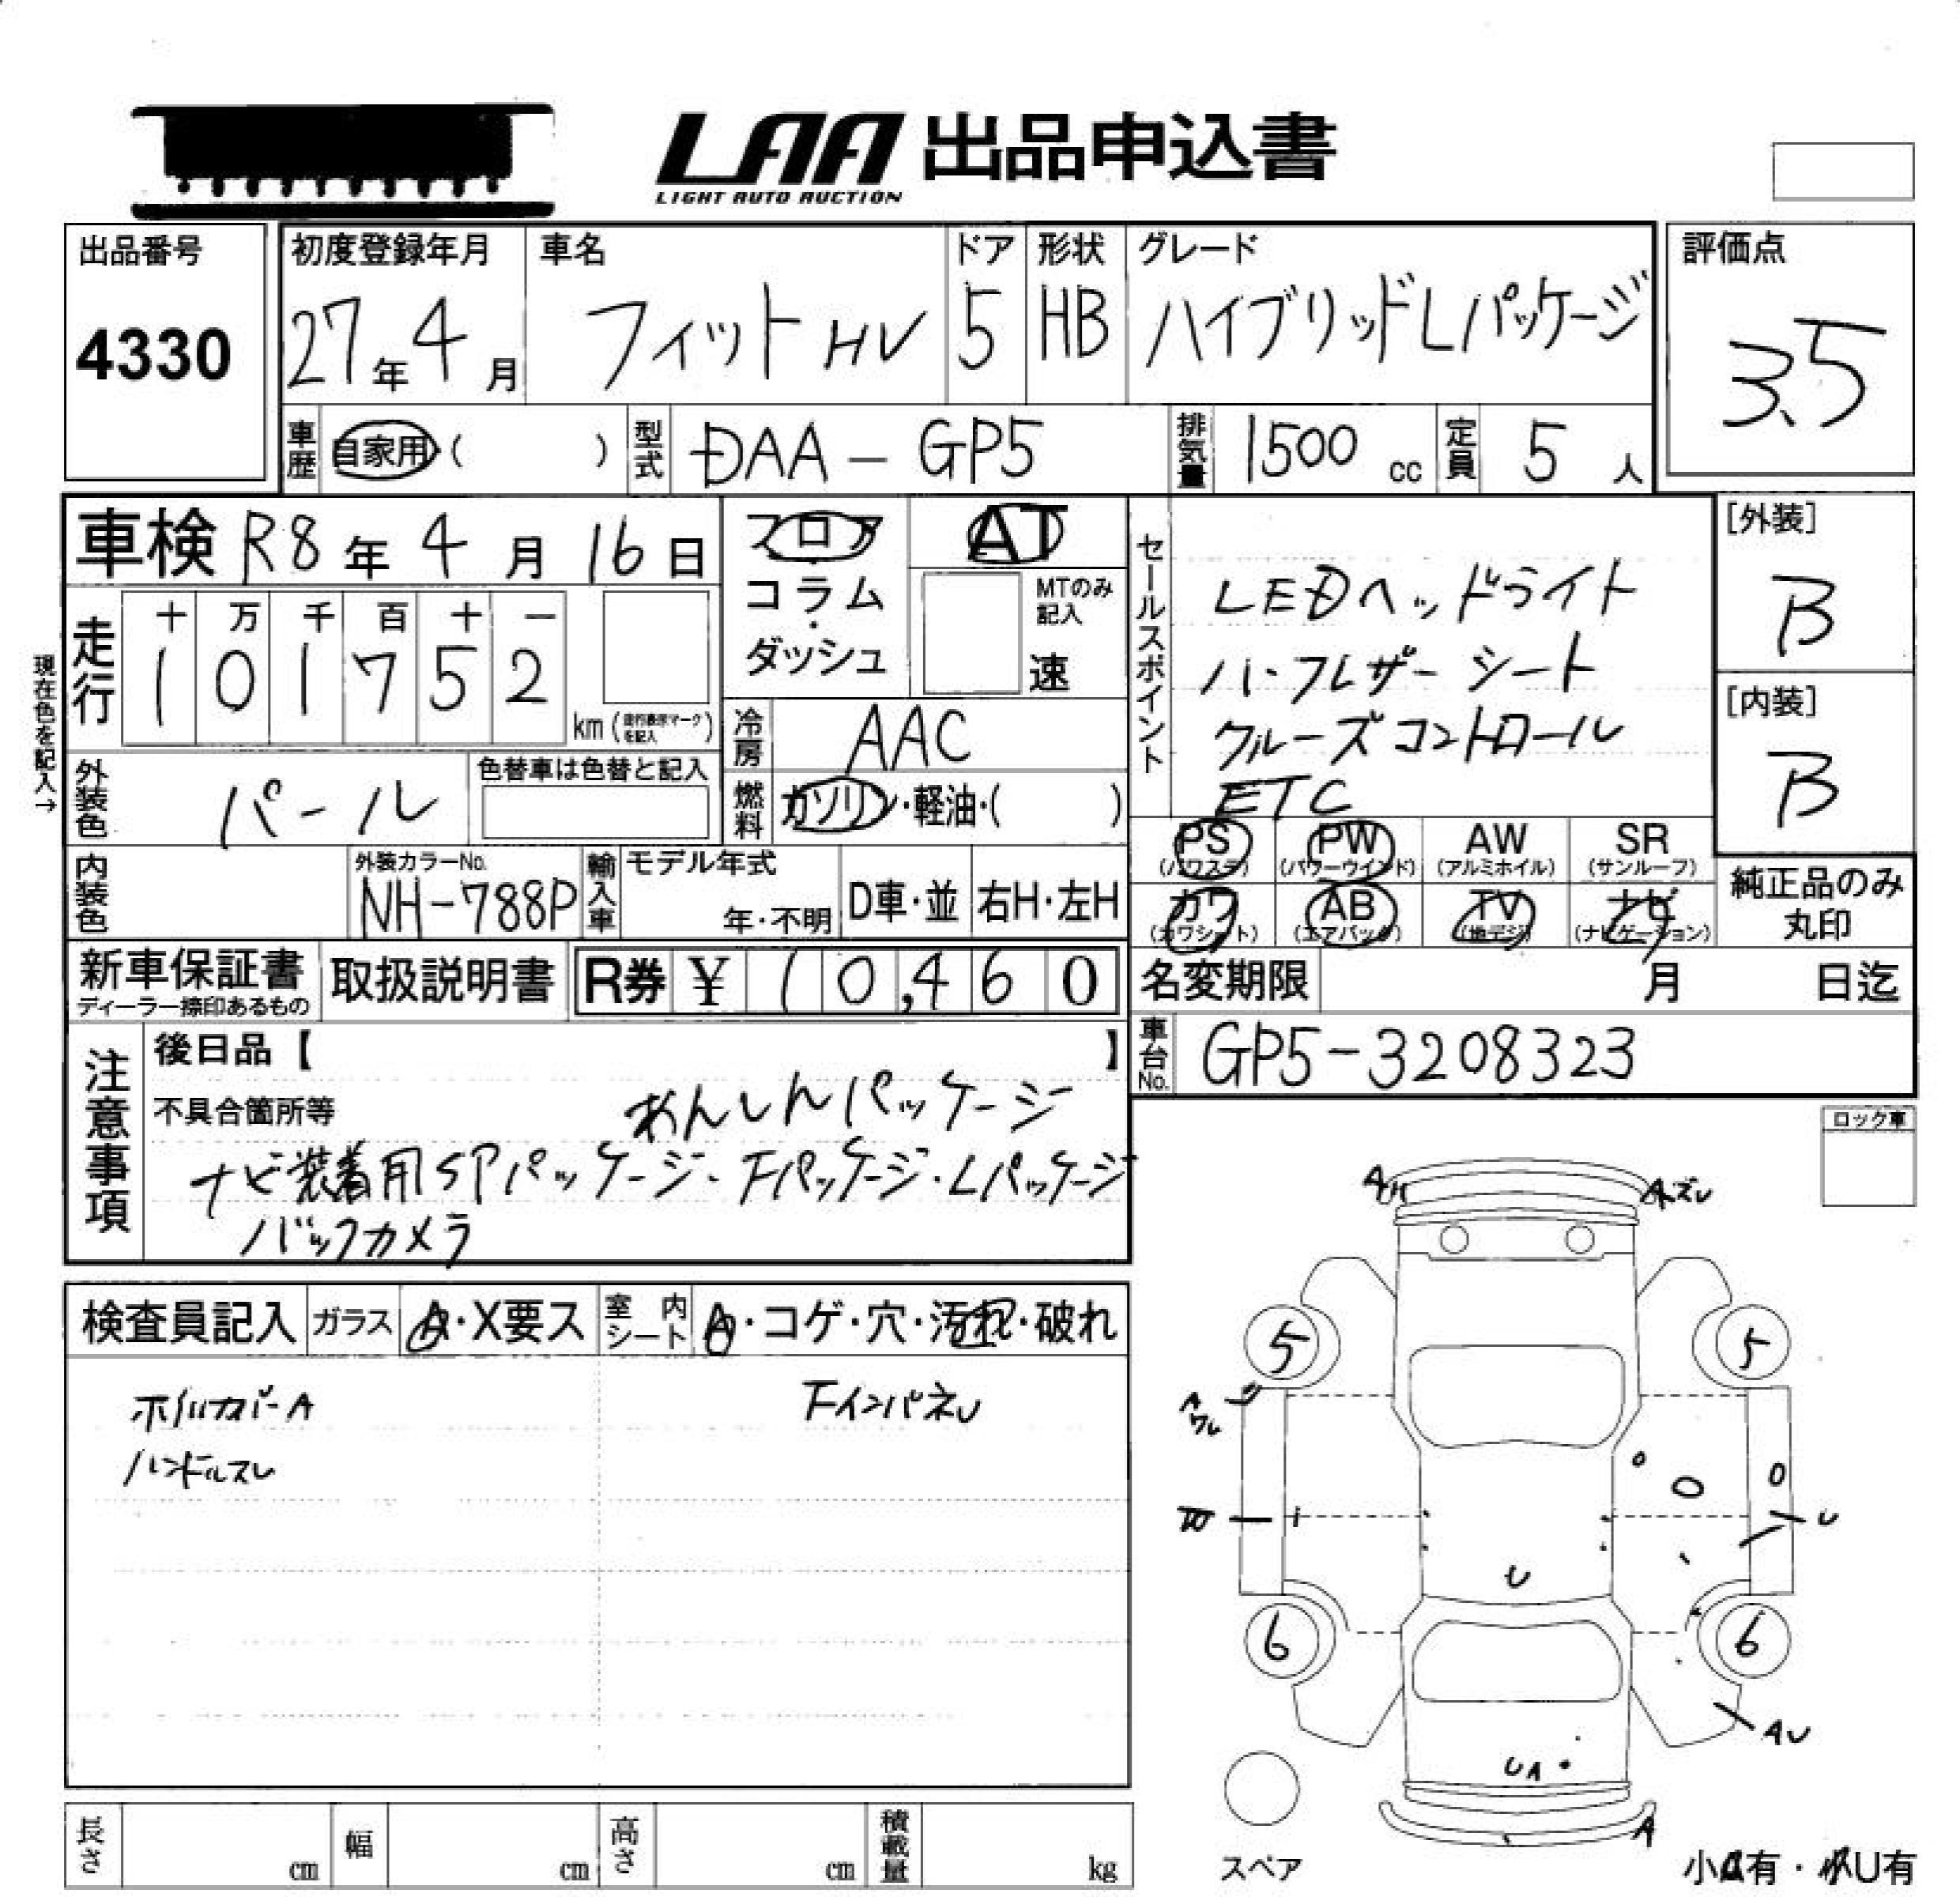 LAA 出品申込書
LIGHT AUTO AUCTION
出品番号
4330
初度登録年月
27年4月
車名
フィット HV
ドア
5
形状
HB
グレード
ハイブリッドLパッケージ
評価点
3.5
車歴
自家用・( )
型式
DAA-GP5
排気量
1500 cc
定員
5 人
車検 R8年4月16日
フロア
コラム
・
ダッシュ
AT
MTのみ
記入
速
セールスポイント
LEDヘッドライト
ハーフレザーシート
クルーズコントロール
ETC
[外装]
B
[内装]
B
現在色を記入→
走行
十 万 千 百 十 一
1 0 1 7 5 2
km (走行表示マークを記入)
冷房
AAC
燃料
ガソリン・軽油・( )
外装色
パール
色替車は色替と記入
内装色
外装カラーNo.
NH-788P
輸入車
モデル年式
年・不明
D車・並
右H・左H
PS
(パワステ)
PW
(パワーウインド)
AW
(アルミホイル)
SR
(サンルーフ)
カワ
(カワシート)
AB
(エアバック)
TV
(地デジ)
ナビ
(ナビゲーション)
純正品のみ
丸印
新車保証書
ディーラー捺印あるもの
取扱説明書
R券 ¥ 10,460
名変期限
月 日迄
車台No.
GP5-3208323
注意事項
後日品【 】
不具合箇所等
あんしんパッケージ
ナビ装着用SPパッケージ・Fパッケージ・Lパッケージ
バックカメラ
ロック車
検査員記入
ガラス
A・X要ス
室内
シート
A・コゲ・穴・汚れ・破れ
ホイルカバーA
FインパネU
ハンドルスレ
A
Aズレ
5
5
U
U
6
6
AU
UA
A
スペア
小A有・小U有
長さ
cm
幅
cm
高さ
cm
積載量
kg